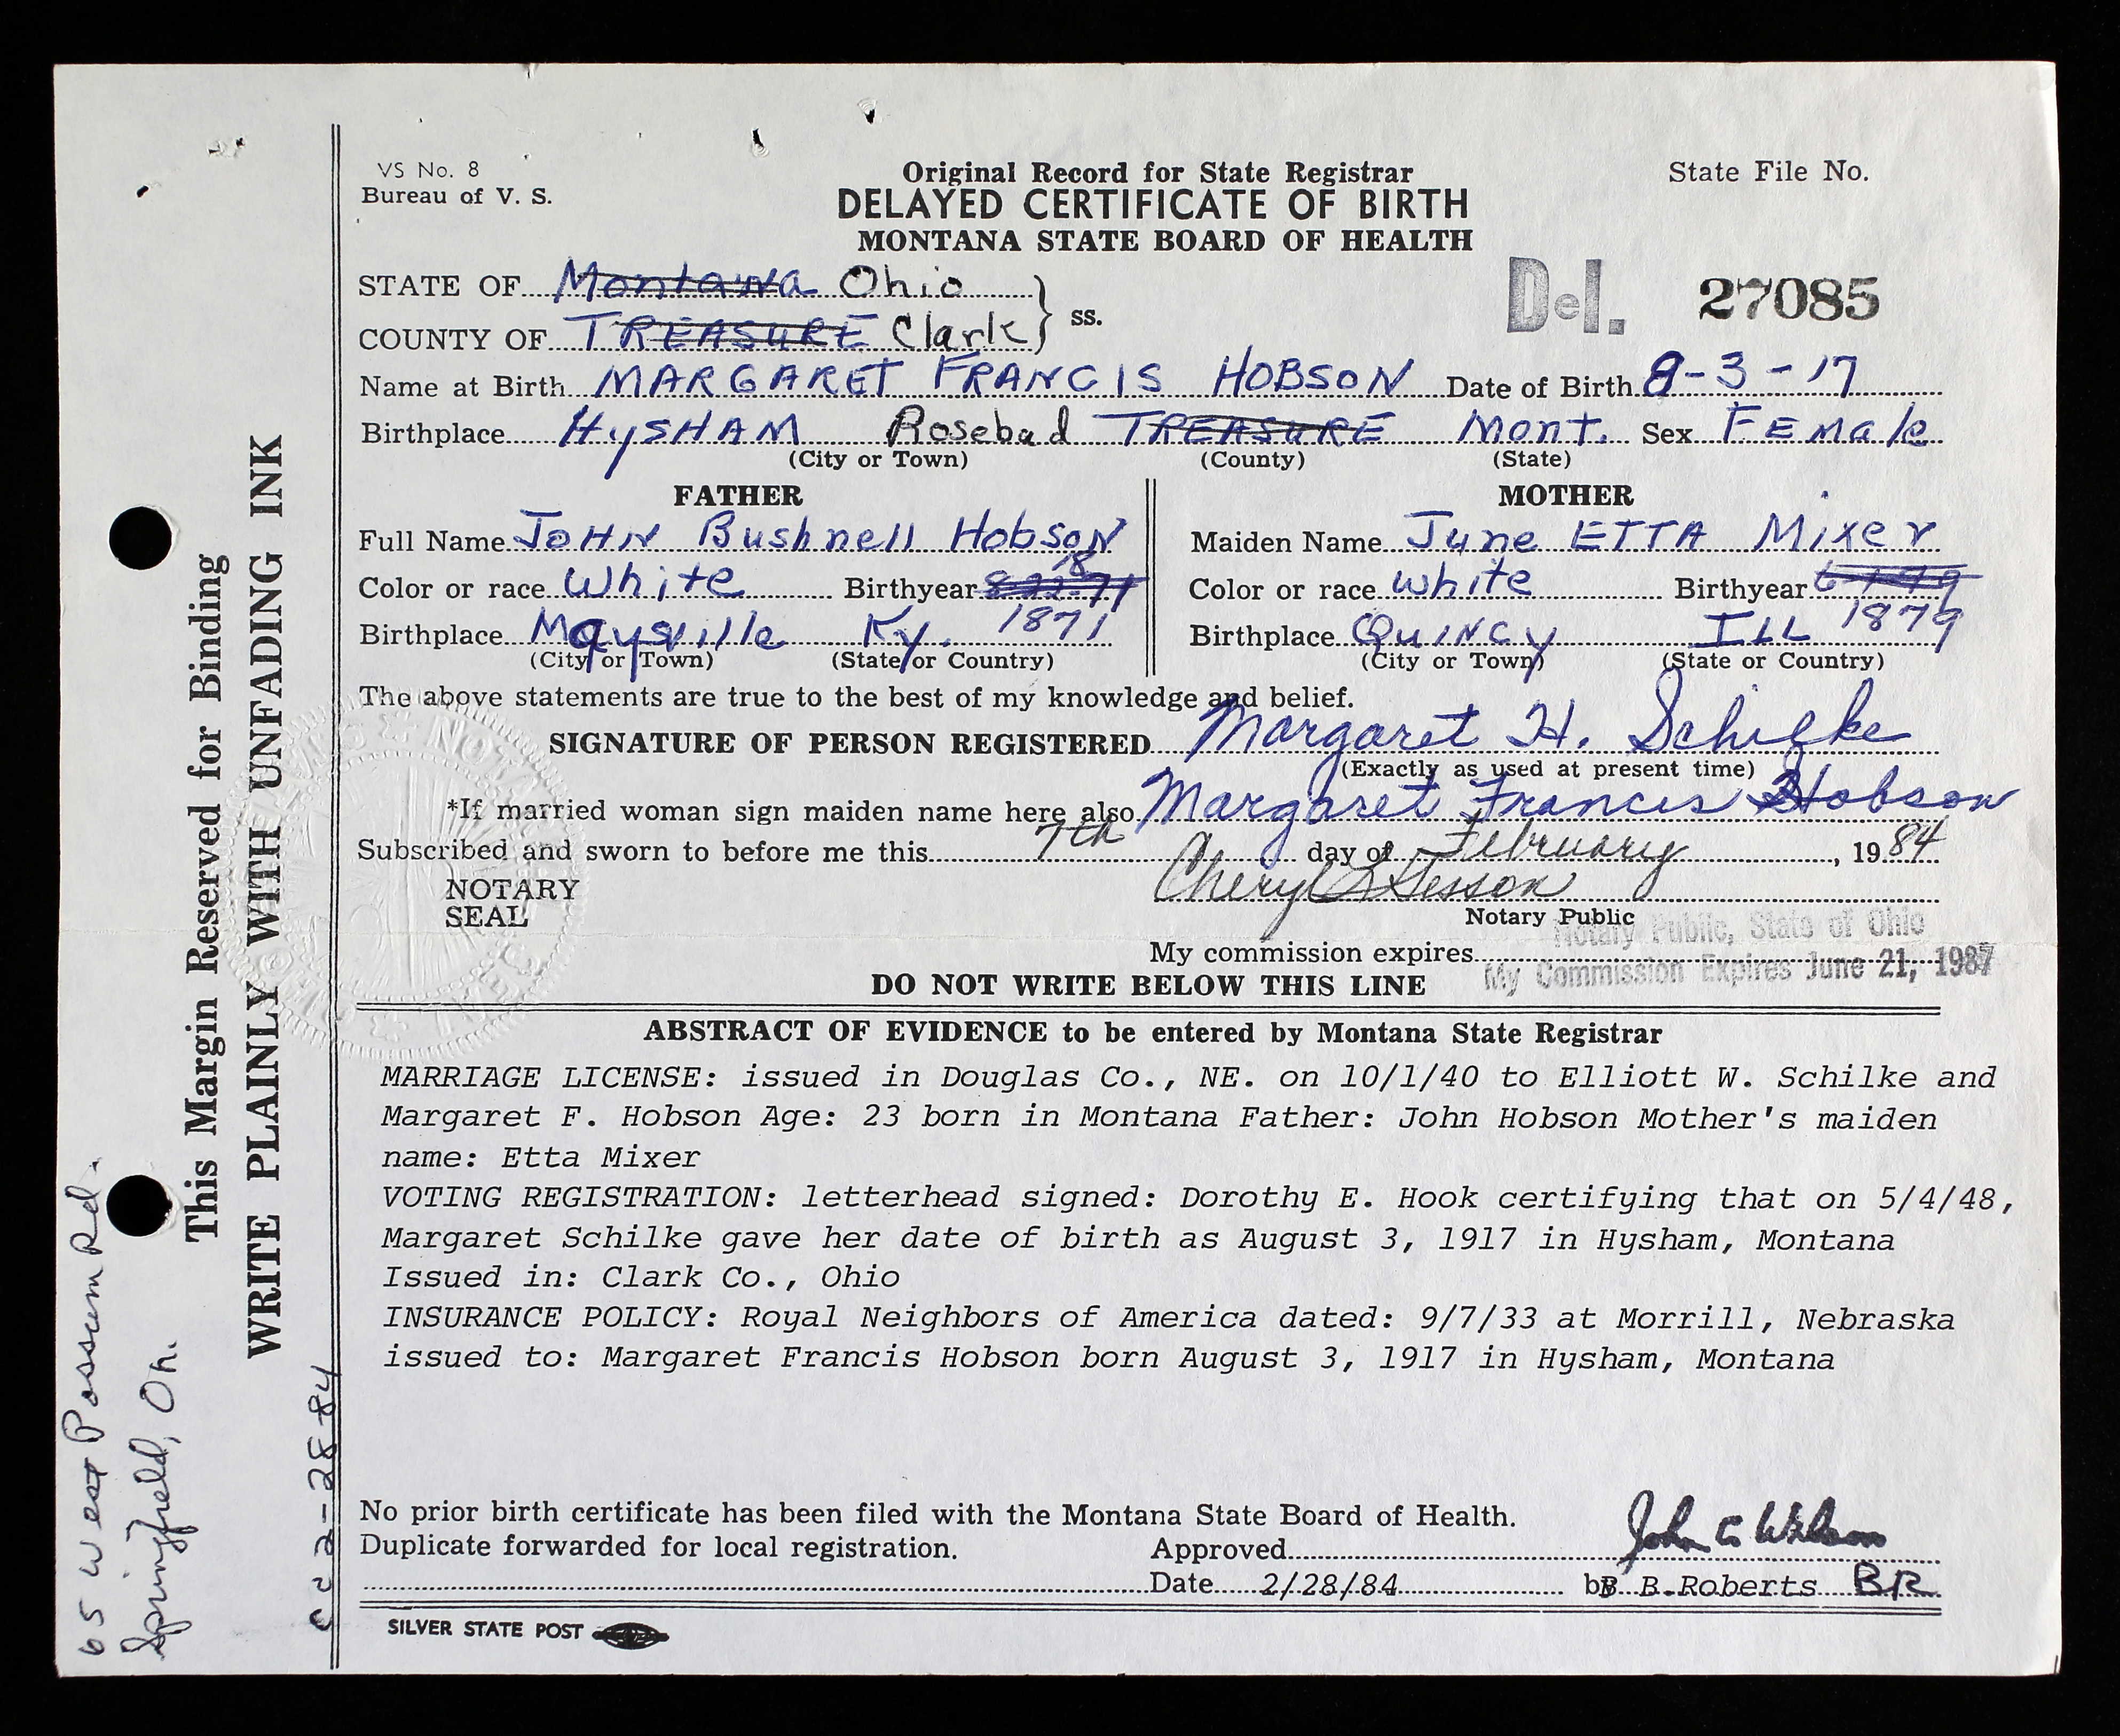 VS No. 8
Bureau of V. S.
Original Record for State Registrar
DELAYED CERTIFICATE OF BIRTH
MONTANA STATE BOARD OF HEALTH
State File No.
Del. 27085
STATE OF Montana Ohio
COUNTY OF TREASURE Clark } ss.
Name at Birth MARGARET FRANCIS HOBSON Date of Birth 8-3-17
Birthplace HYSHAM Rosebud TREASURE Mont. Sex FEMale
(City or Town) (County) (State)
FATHER
Full Name JOHN Bushnell Hobson
Color or race White Birthyear
Birthplace Maysville Ky. 1871
(City or Town) (State or Country)
MOTHER
Maiden Name June ETTA Mixer
Color or race white Birthyear
Birthplace QUINCY ILL 1879
(City or Town) (State or Country)
The above statements are true to the best of my knowledge and belief.
SIGNATURE OF PERSON REGISTERED Margaret H. Schilke
(Exactly as used at present time)
*If married woman sign maiden name here also Margaret Francis Hobson
Subscribed and sworn to before me this 7th day of February, 1984
Cheryl L Sesson
NOTARY
SEAL
Notary Public
Notary Public, State of Ohio
My commission expires
My Commission Expires June 21, 1987
DO NOT WRITE BELOW THIS LINE
ABSTRACT OF EVIDENCE to be entered by Montana State Registrar
MARRIAGE LICENSE: issued in Douglas Co., NE. on 10/1/40 to Elliott W. Schilke and
Margaret F. Hobson Age: 23 born in Montana Father: John Hobson Mother's maiden
name: Etta Mixer
VOTING REGISTRATION: letterhead signed: Dorothy E. Hook certifying that on 5/4/48,
Margaret Schilke gave her date of birth as August 3, 1917 in Hysham, Montana
Issued in: Clark Co., Ohio
INSURANCE POLICY: Royal Neighbors of America dated: 9/7/33 at Morrill, Nebraska
issued to: Margaret Francis Hobson born August 3, 1917 in Hysham, Montana
No prior birth certificate has been filed with the Montana State Board of Health.
Duplicate forwarded for local registration.
Approved John C Wilson
Date 2/28/84 by B. Roberts BR
SILVER STATE POST
This Margin Reserved for Binding
WRITE PLAINLY WITH UNFADING INK
65 West Possum Rd.
Springfield, Oh.
cc 2-28-84